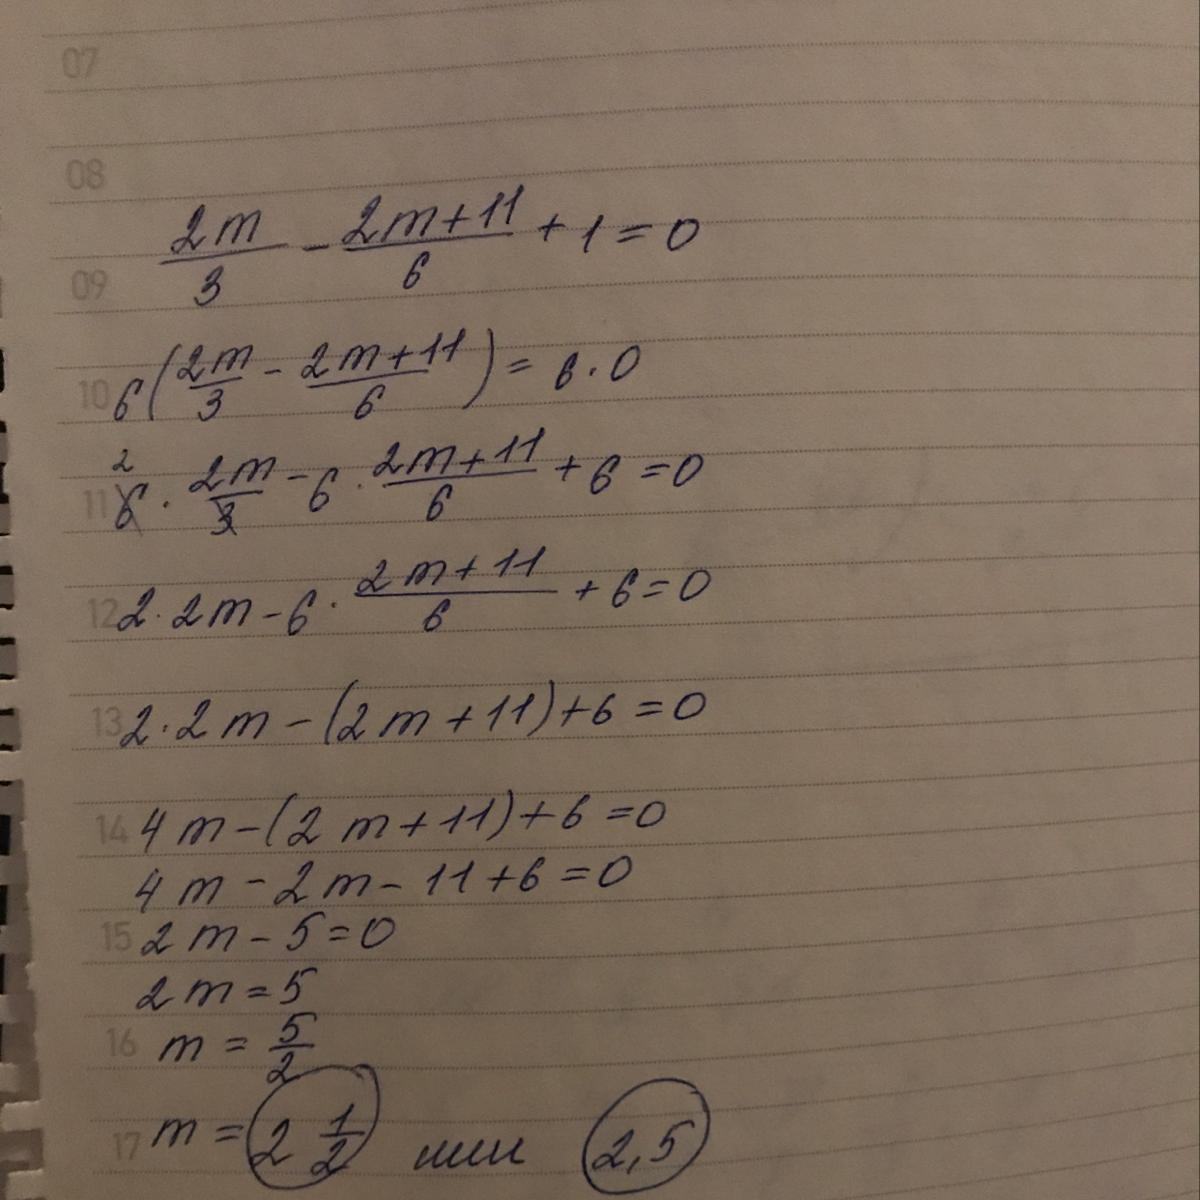 07
08
2m/3 - 2m+11/6 + 1 = 0
09
10 6(2m/3 - 2m+11/6) = 6·0
2
11 6 · 2m/3 - 6 · 2m+11/6 + 6 = 0
12 2·2m - 6 · 2m+11/6 + 6 = 0
13 2·2m - (2m+11)+6 = 0
14 4m - (2m+11)+6 = 0
4m - 2m - 11 + 6 = 0
15 2m - 5 = 0
2m = 5
16 m = 5/2
17 m = 2 1/2 или 2,5